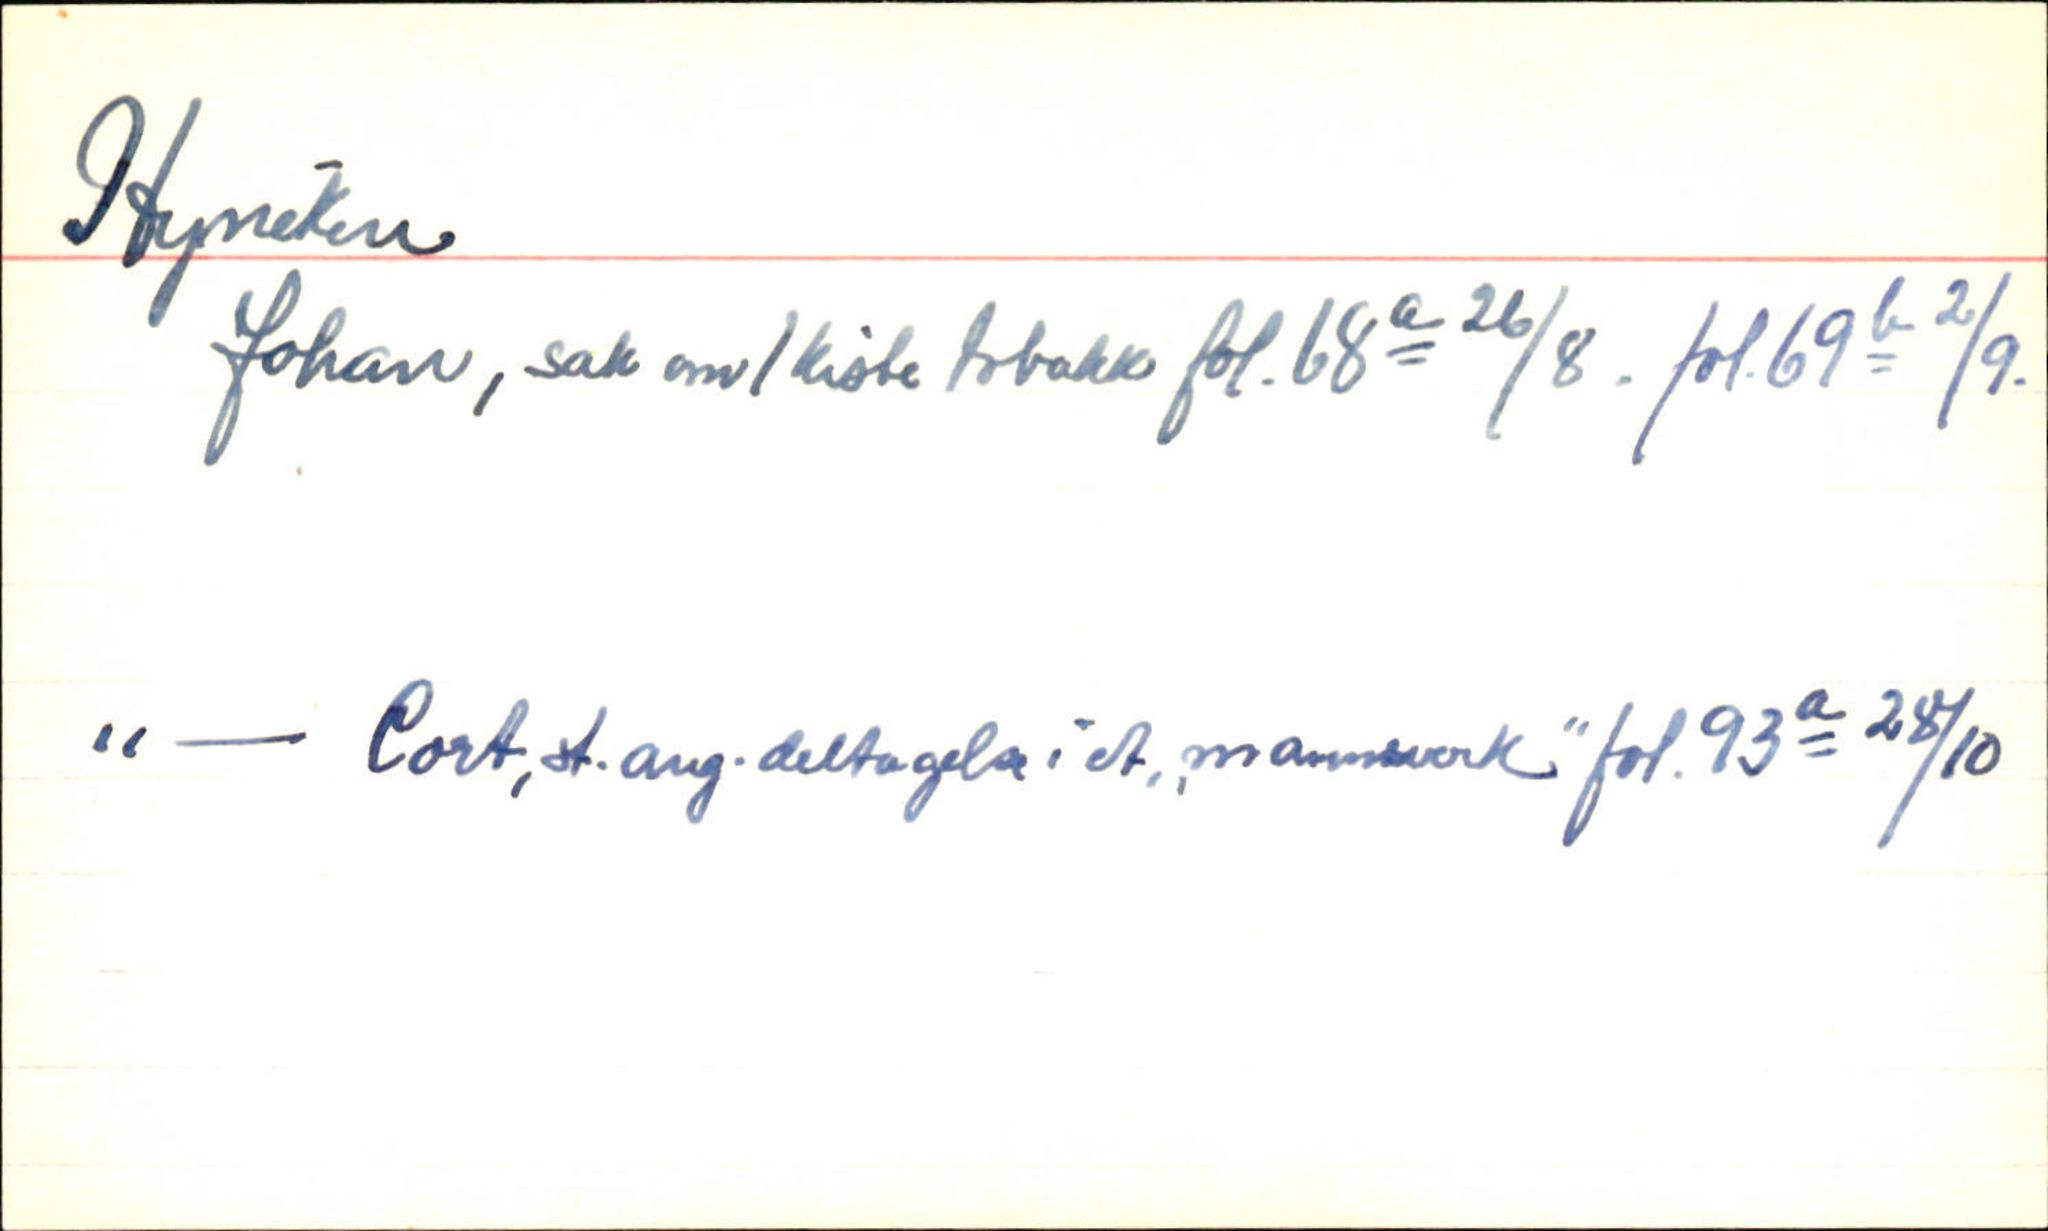 Hyneken
Johan, sak om 1 kiste tobakk fol. 68a 26/8. fol. 69b 2/9.
"— Cort, st. ang. deltagelse i et „mannsverk" fol. 93a 28/10